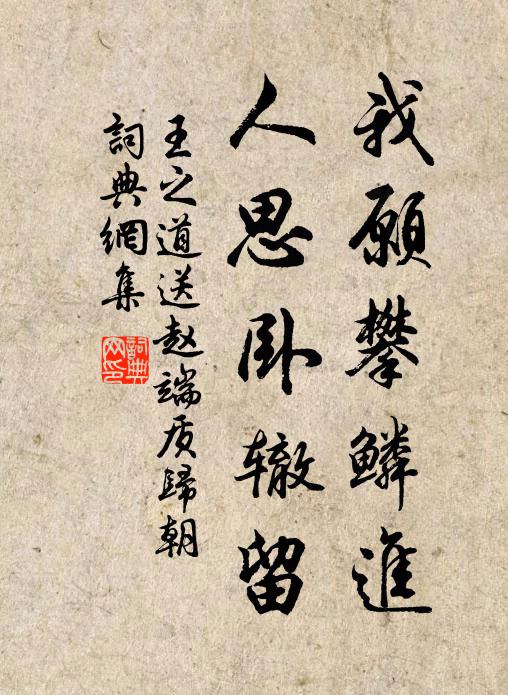 我願攀鱗進
人思卧辙留
王之道送赵端质歸朝
詞典網集
詞典網印